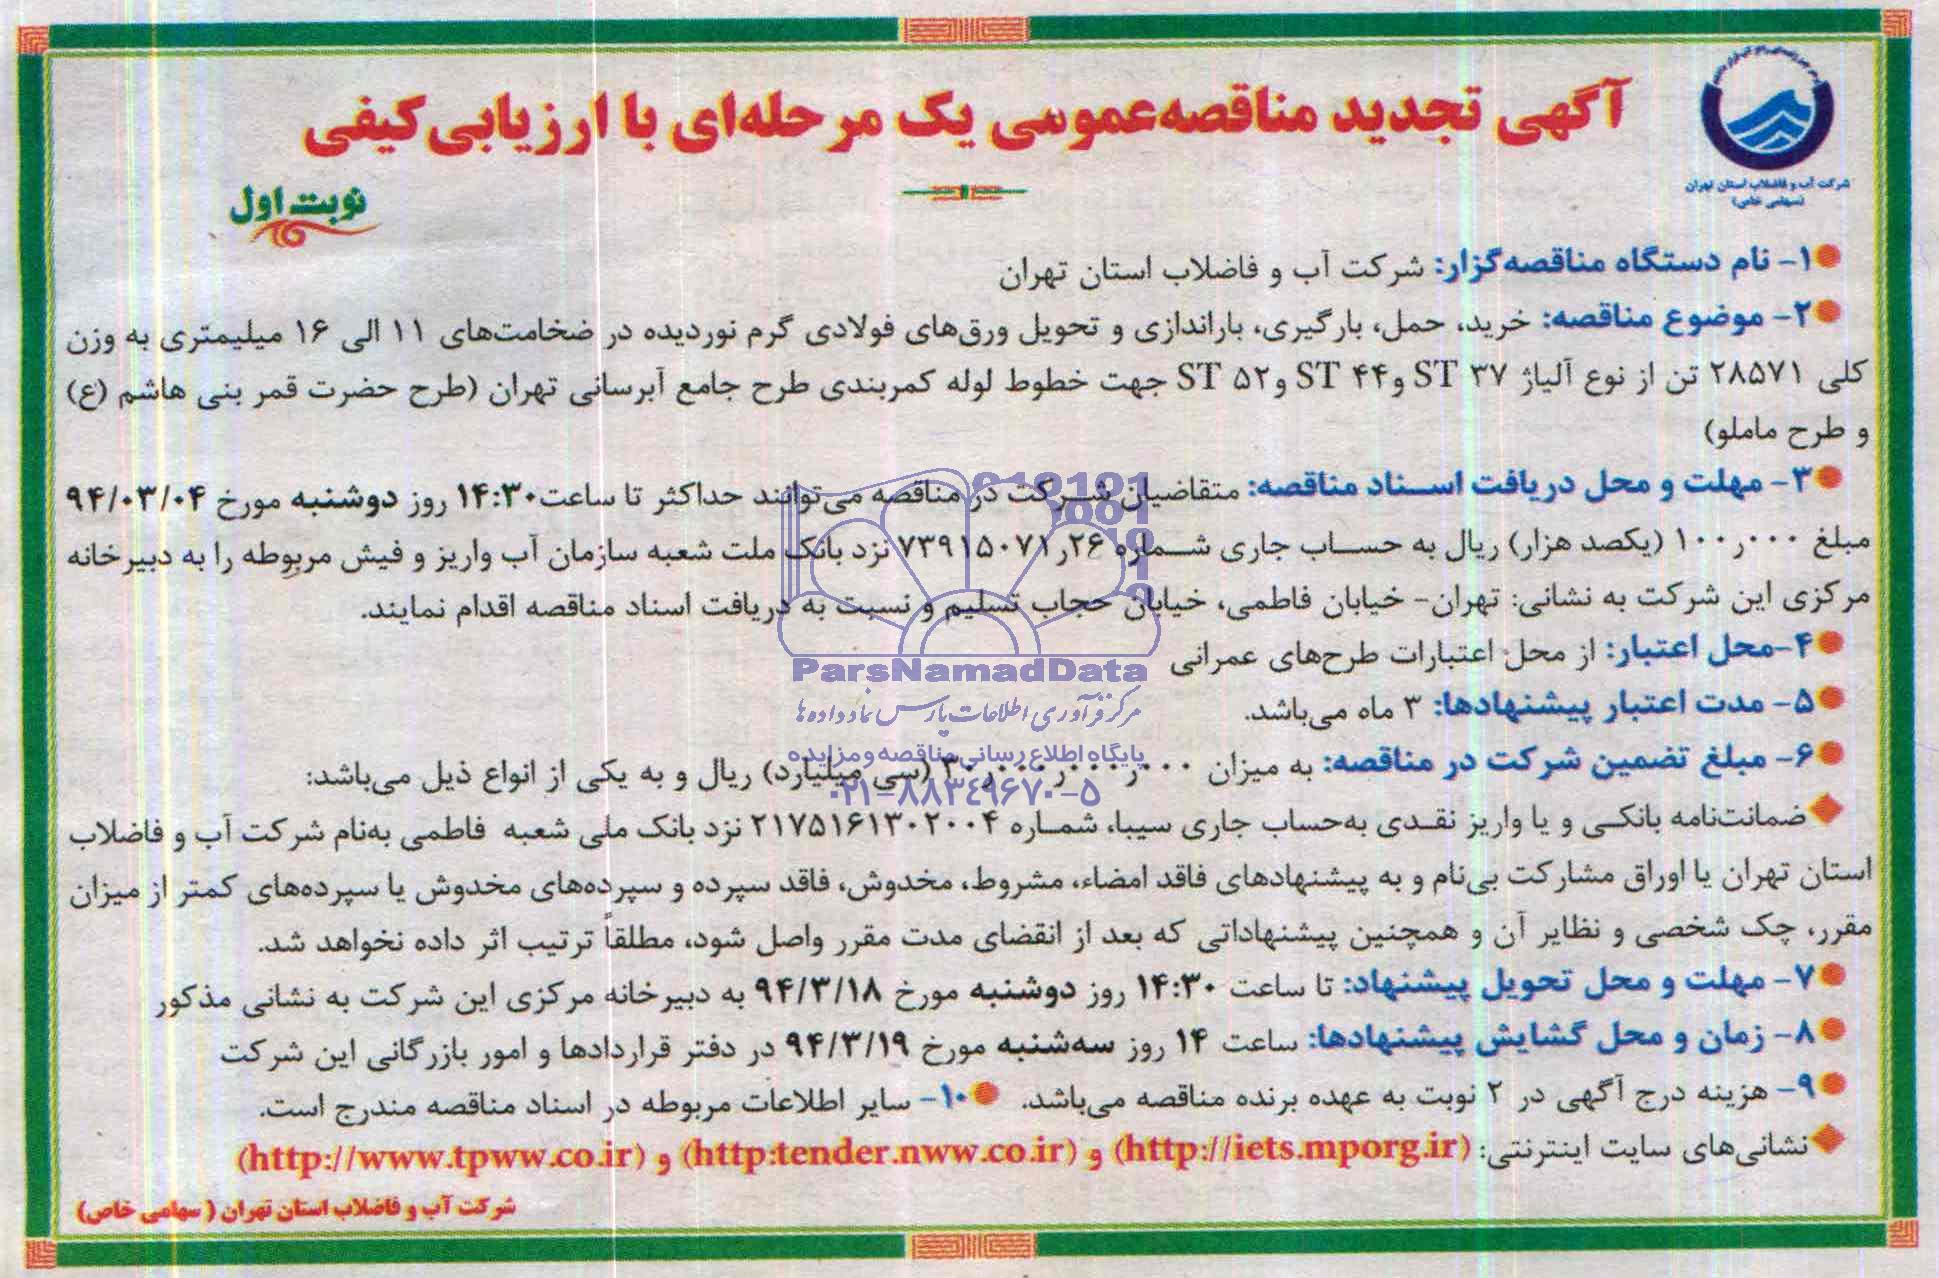 آگهی تجدید مناقصه‌عمومی یک مرحله‌ای با ارزیابی کیفی
شرکت آب و فاضلاب استان تهران
(سهامی خاص)
نوبت اول
۱- نام دستگاه مناقصه‌گزار: شرکت آب و فاضلاب استان تهران
۲- موضوع مناقصه: خرید، حمل، بارگیری، باراندازی و تحویل ورق‌های فولادی گرم نوردیده در ضخامت‌های ۱۱ الی ۱۶ میلیمتری به وزن
کلی ۲۸۵۷۱ تن از نوع آلیاژ ST ۳۷ و ST ۴۴ و ST ۵۲ جهت خطوط لوله کمربندی طرح جامع آبرسانی تهران (طرح حضرت قمر بنی هاشم (ع)
و طرح ماملو)
۳- مهلت و محل دریافت اسناد مناقصه: متقاضیان شرکت در مناقصه می‌توانند حداکثر تا ساعت ۱۴:۳۰ روز دوشنبه مورخ ۹۴/۰۳/۰۴
مبلغ ۱۰۰ر۰۰۰ (یکصد هزار) ریال به حساب جاری شماره ۷۳۹۱۵۰۷۱ر۲۶ نزد بانک ملت شعبه سازمان آب واریز و فیش مربوطه را به دبیرخانه
مرکزی این شرکت به نشانی: تهران- خیابان فاطمی، خیابان حجاب تسلیم و نسبت به دریافت اسناد مناقصه اقدام نمایند.
۴-محل اعتبار: از محل اعتبارات طرح‌های عمرانی
۵- مدت اعتبار پیشنهادها: ۳ ماه می‌باشد.
۶- مبلغ تضمین شرکت در مناقصه: به میزان ۳۰ر۰۰۰ر۰۰۰ر۰۰۰ (سی میلیارد) ریال و به یکی از انواع ذیل می‌باشد:
ضمانت‌نامه بانکی و یا واریز نقدی به‌حساب جاری سیبا، شماره ۲۱۷۵۱۶۱۳۰۲۰۰۴ نزد بانک ملی شعبه فاطمی به‌نام شرکت آب و فاضلاب
استان تهران یا اوراق مشارکت بی‌نام و به پیشنهادهای فاقد امضاء، مشروط، مخدوش، فاقد سپرده و سپرده‌های مخدوش یا سپرده‌های کمتر از میزان
مقرر، چک شخصی و نظایر آن و همچنین پیشنهاداتی که بعد از انقضای مدت مقرر واصل شود، مطلقاً ترتیب اثر داده نخواهد شد.
۷- مهلت و محل تحویل پیشنهاد: تا ساعت ۱۴:۳۰ روز دوشنبه مورخ ۹۴/۳/۱۸ به دبیرخانه مرکزی این شرکت به نشانی مذکور
۸- زمان و محل گشایش پیشنهادها: ساعت ۱۴ روز سه‌شنبه مورخ ۹۴/۳/۱۹ در دفتر قراردادها و امور بازرگانی این شرکت
۹- هزینه درج آگهی در ۲ نوبت به عهده برنده مناقصه می‌باشد. ۱۰- سایر اطلاعات مربوطه در اسناد مناقصه مندرج است.
نشانی‌های سایت اینترنتی: (http://iets.mporg.ir) و (http:tender.nww.co.ir) و (http://www.tpww.co.ir)
شرکت آب و فاضلاب استان تهران ( سهامی خاص)
ParsNamadData
مرکز فرآوری اطلاعات پارس نماد داده‌ها
پایگاه اطلاع رسانی مناقصه و مزایده
۰۲۱-۸۸۳۴۹۶۷۰-۵